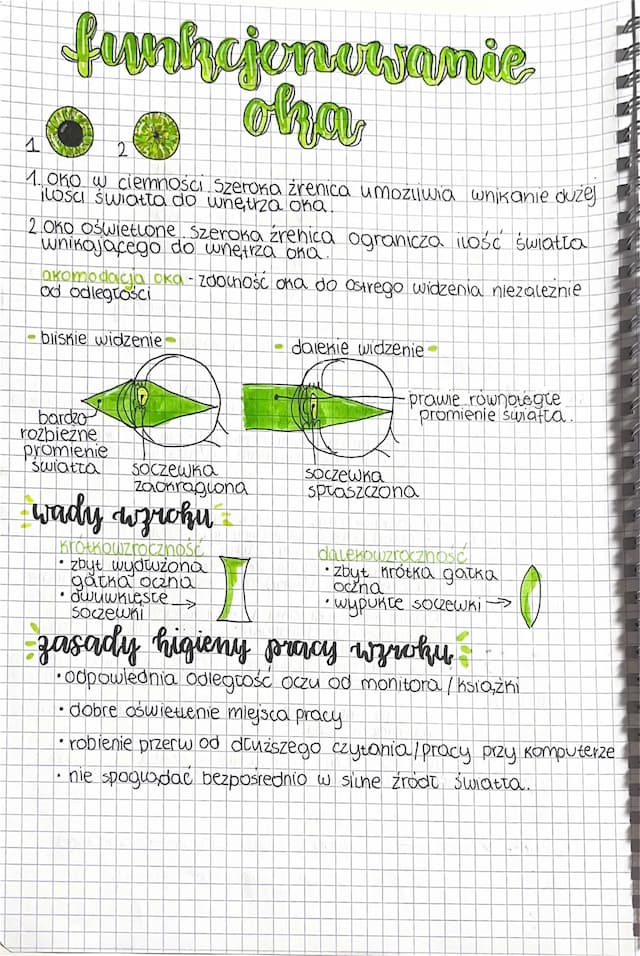 funkcjonowanie
oka
1 2
1. oko w ciemności. szeroka źrenica umożliwia wnikanie dużej
ilości światła do wnętrza oka.
2. oko oświetlone. szeroka źrenica ogranicza ilość światła
wnikającego do wnętrza oka.
akomodacja oka - zdolność oka do ostrego widzenia niezależnie
od odległości
- bliskie widzenie -
- dalekie widzenie -
bardzo
rozbieżne
promienie
światła
soczewka
zaokrąglona
prawie równoległe
promienie światła.
soczewka
spłaszczona
wady wzroku
krótkowzroczność
• zbyt wydłużona
gałka oczna
• dwuwklęsłe →
soczewki
dalekowzroczność
• zbyt krótka gałka
oczna
• wypukłe soczewki →
zasady higieny pracy wzroku
• odpowiednia odległość oczu od monitora / książki
• dobre oświetlenie miejsca pracy
• robienie przerw od dłuższego czytania/pracy przy komputerze
• nie spoglądać bezpośrednio w silne źródł światła.